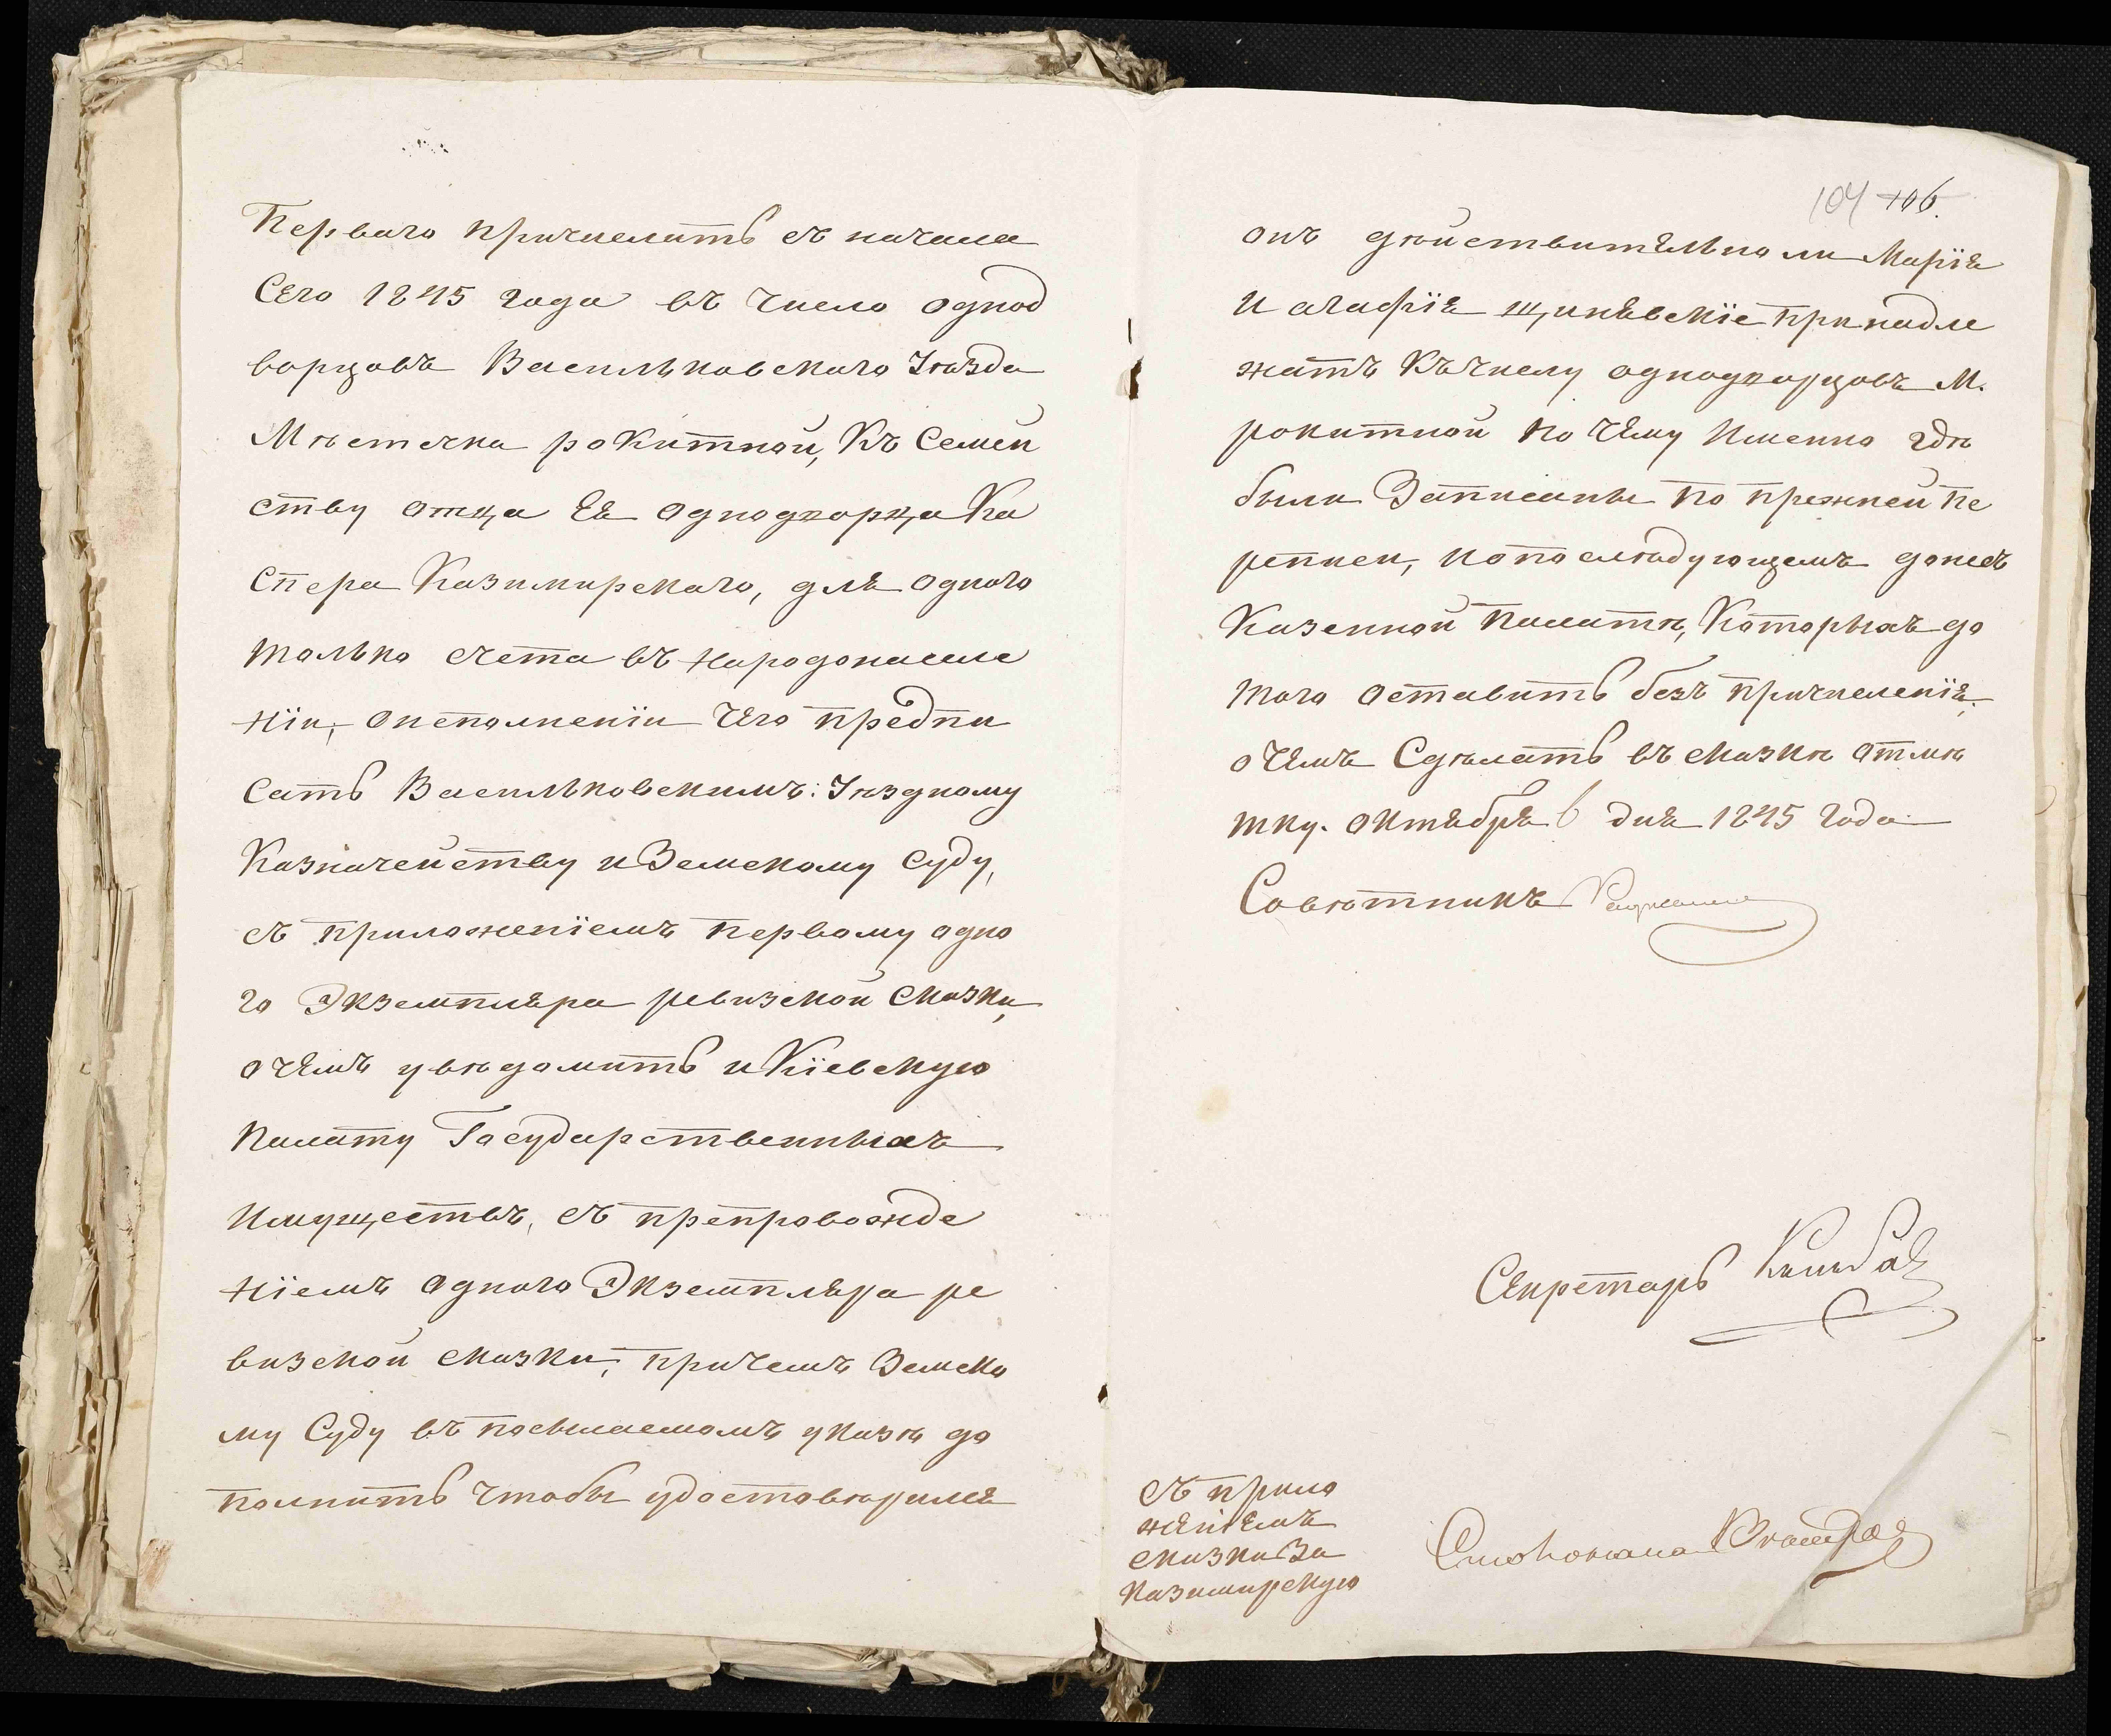 Перваго причислить съ начала
Сего 1845 года въ число однод
ворцовъ Васильковскаго Уѣзда
Мѣстечка рокитной, Къ Семей
ству отца Ея однодворца Ка
спера Казимирскаго, для одного
только счета въ народонаселе
ніи, о исполненіи чего предпи
сать Васильковскимъ: Уѣздному
Казначейству и Земскому Суду,
съ приложеніемъ первому одно
го Экземпляра ревизской сказки,
о чемъ увѣдомить и Кіевскую
Палату Государственныхъ
Имуществъ, съ препровожде
ніемъ одного Экземпляра ре
визской сказки, причемъ Земско
му Суду въ посылаемомъ указѣ до
полнить чтобы удостовѣрился
104 106.
онъ дѣйствительно ли Марія
и агафія щинѣвскіе принадле
жатъ Къ числу однодворцовъ М.
рокитной по чему Именно гдѣ
были Записаны по прежней пе
реписи, и о послѣдующемъ донесъ
Казенной Палатѣ, Которыхъ до
того оставить безъ причисленія,
о чемъ Сдѣлать въ сказкѣ отмѣ
тку. октября 6 дня 1845 года
Совѣтникъ
Секретарь
съ прило
женіемъ
сказки За
Казимирскую